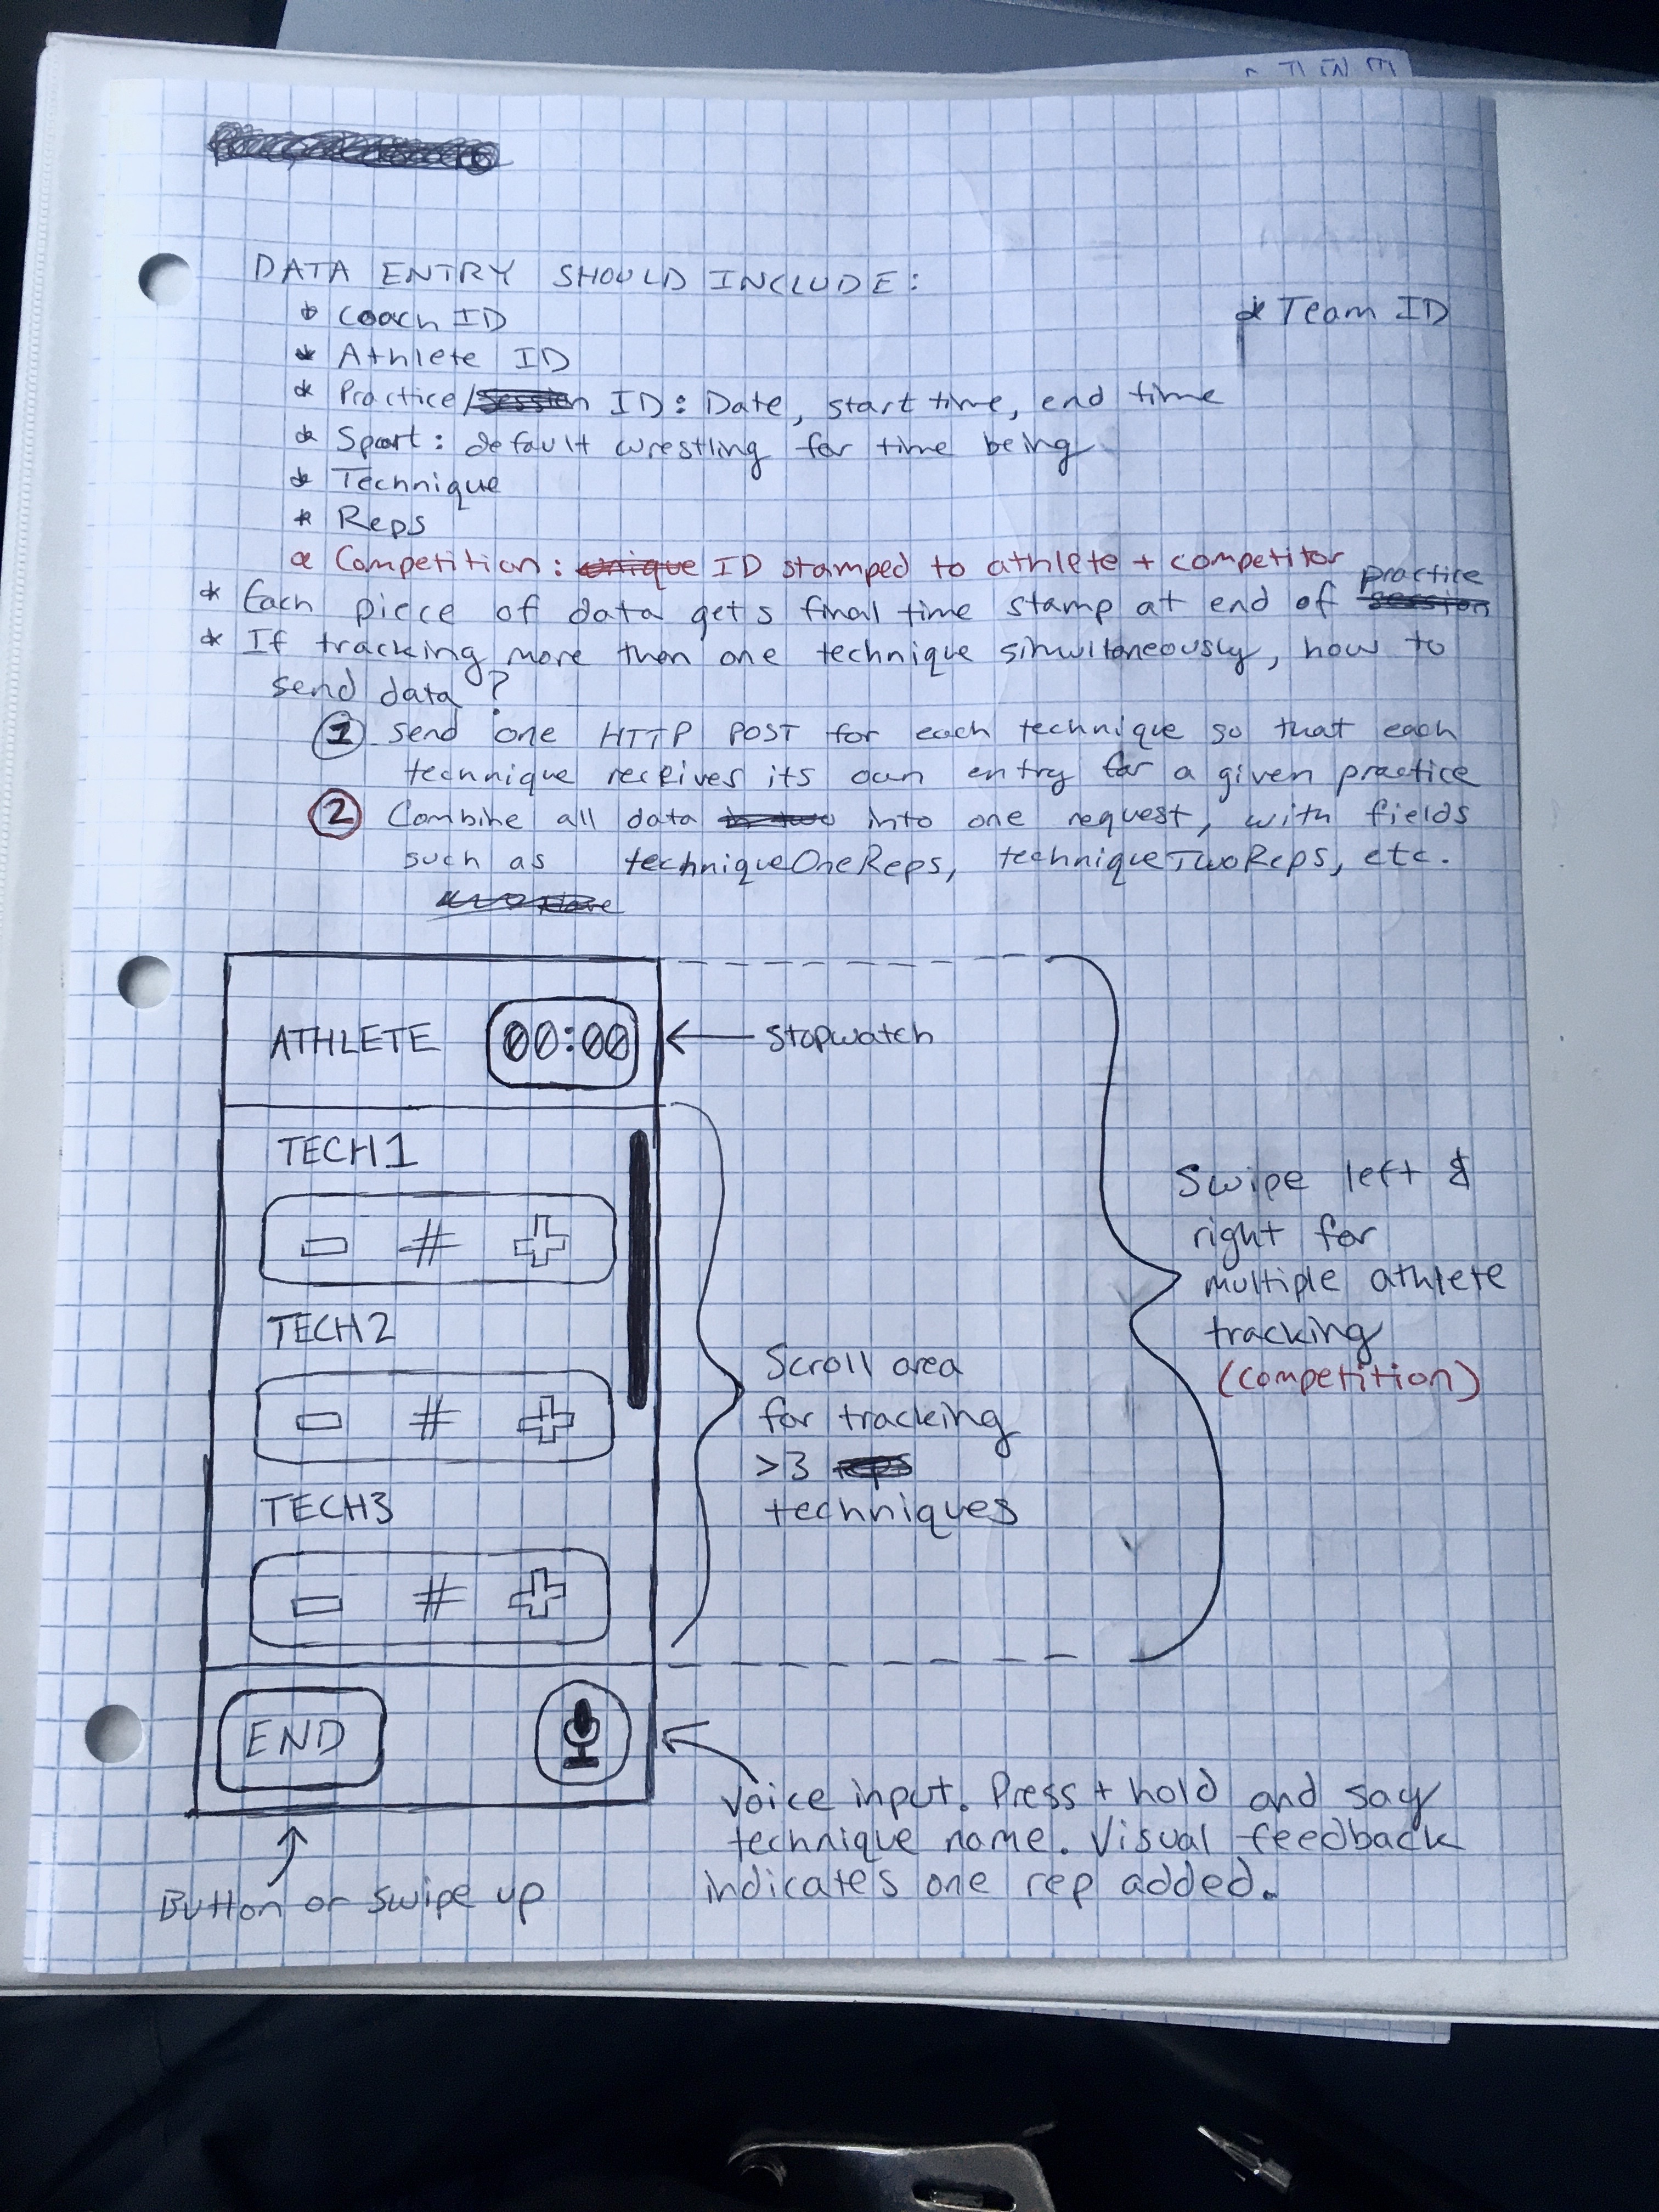 DATA ENTRY SHOULD INCLUDE:
* Coach ID
* Team ID
* Athlete ID
* Practice/session ID: Date, start time, end time
* Sport: default wrestling for time being
* Technique
* Reps
* Competition: unique ID stamped to athlete + competitor
* Each piece of data gets final time stamp at end of session practice
* If tracking more than one technique simultaneously, how to
send data?
1 Send one HTTP POST for each technique so that each
technique receives its own entry for a given practice
2 Combine all data into one request, with fields
such as techniqueOneReps, techniqueTwoReps, etc.
ATHLETE 00:00 ← Stopwatch
TECH1
- # +
TECH2
- # +
TECH3
- # +
END
Scroll area
for tracking
>3 reps
techniques
Swipe left &
right for
multiple athlete
tracking
(competition)
Voice input. Press + hold and say
technique name. Visual feedback
indicates one rep added.
Button or swipe up